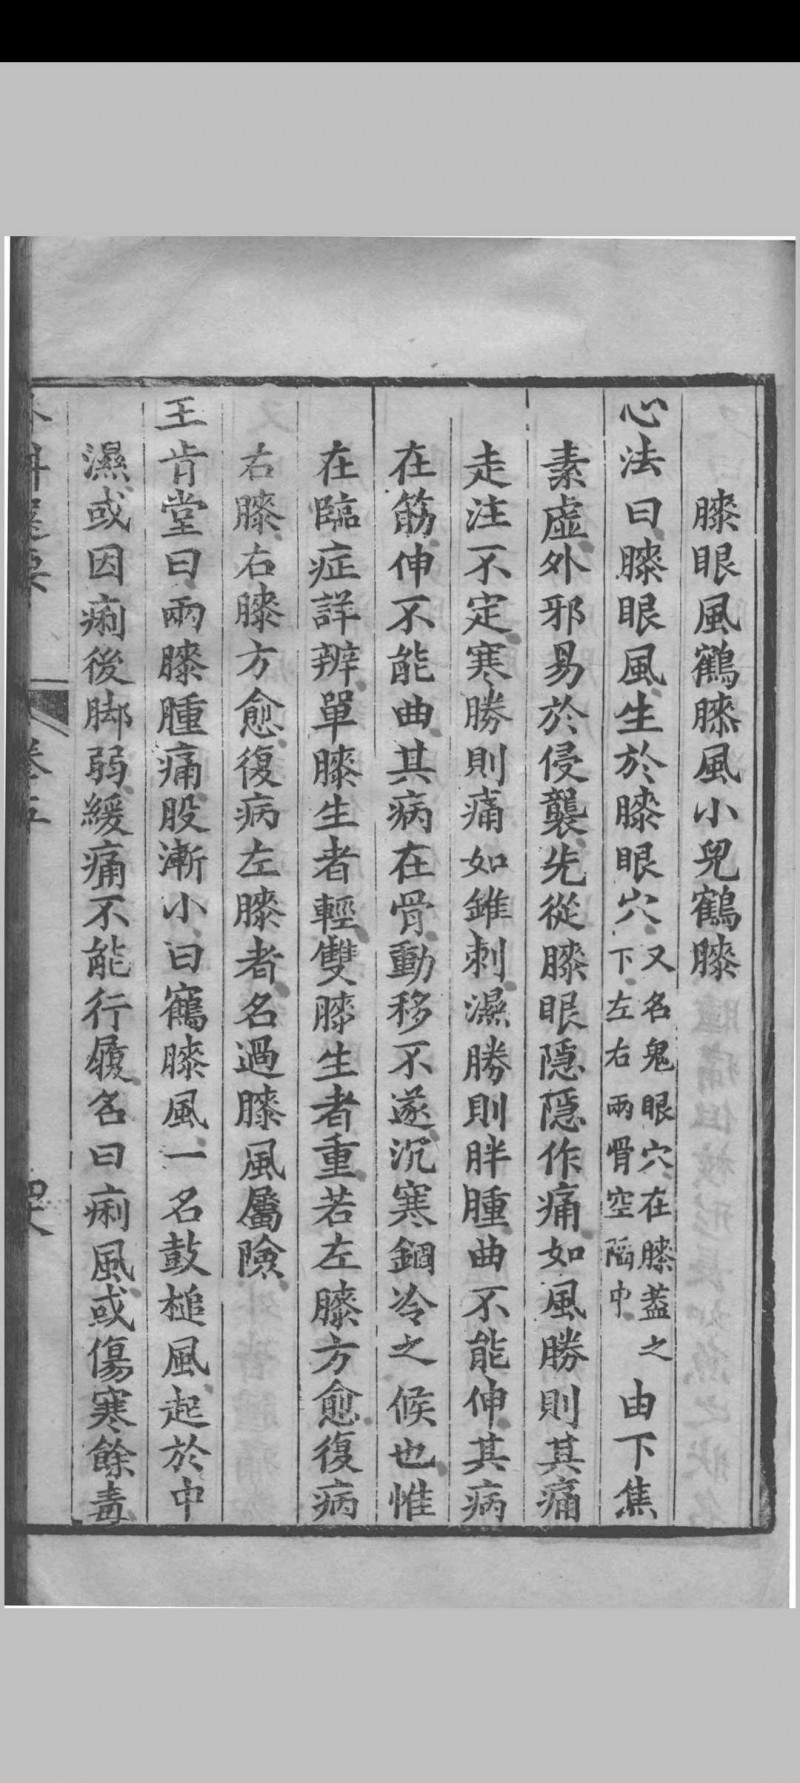 膝眼風鶴膝風小兒鶴膝
心法曰膝眼風生於膝眼穴又名鬼眼穴在膝蓋之下左右兩骨空陷中由下焦
素虛外邪易於侵襲先從膝眼隱隱作痛如風勝則其痛
走注不定寒勝則痛如錐刺濕勝則胖腫曲不能伸其病
在筋伸不能曲其病在骨動移不遂沉寒錮冷之候也惟
在臨症詳辨單膝生者輕雙膝生者重若左膝方愈復病
右膝右膝方愈復病左膝者名過膝風屬險
王肯堂曰兩膝腫痛股漸小曰鶴膝風一名鼓槌風起於中
濕或因痢後脚弱緩痛不能行履名曰痢風或傷寒餘毒
卷五